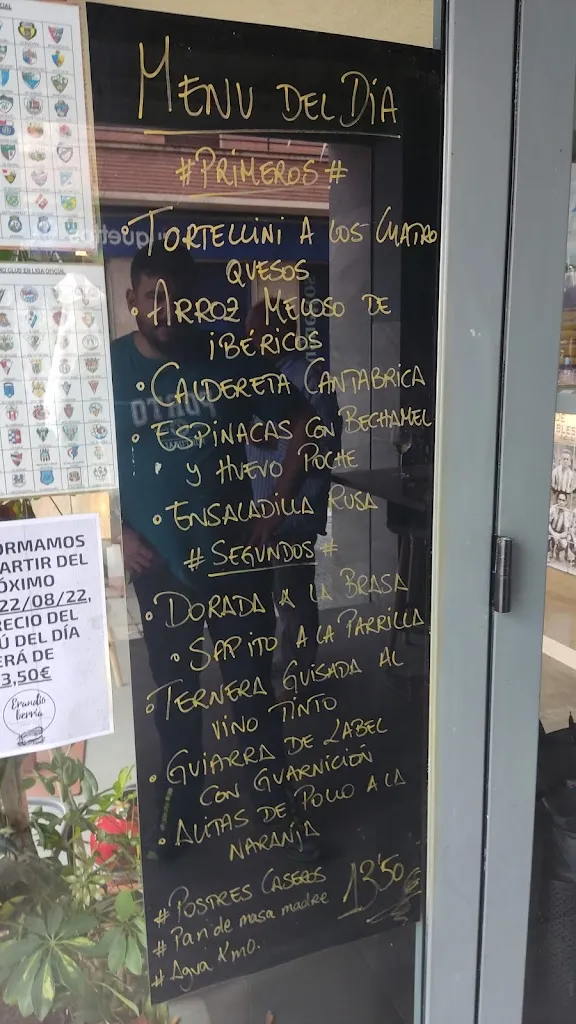 MENU DEL DÍA
#PRIMEROS#
• TORTELLINI A LOS CUATRO
QUESOS
• ARROZ MELOSO DE
IBÉRICOS
• CALDERETA CANTABRICA
• ESPINACAS CON BECHAMEL
Y HUEVO POCHE
• ENSALADILLA RUSA
# SEGUNDOS #
• DORADA A LA BRASA
• SAPITO A LA PARRILLA
• TERNERA GUISADA AL
VINO TINTO
• GUIARRA DE LABEL
CON GUARNICIÓN
• ALITAS DE POLLO A LA
NARANJA
# POSTRES CASEROS
# Pan de masa madre 13'50€
# Agua Km0.
CIAL
MO CLUB EN LIGA OFICIAL
ORMAMOS
ARTIR DEL
ÓXIMO
22/08/22,
RECIO DEL
Ú DEL DÍA
ERÁ DE
3,50€
Erandio
berria
PORTO